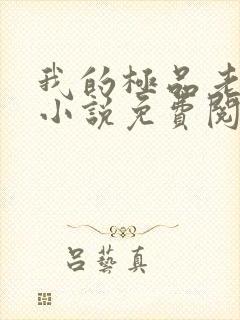 我的極品老
小說免費閱
呂藝真